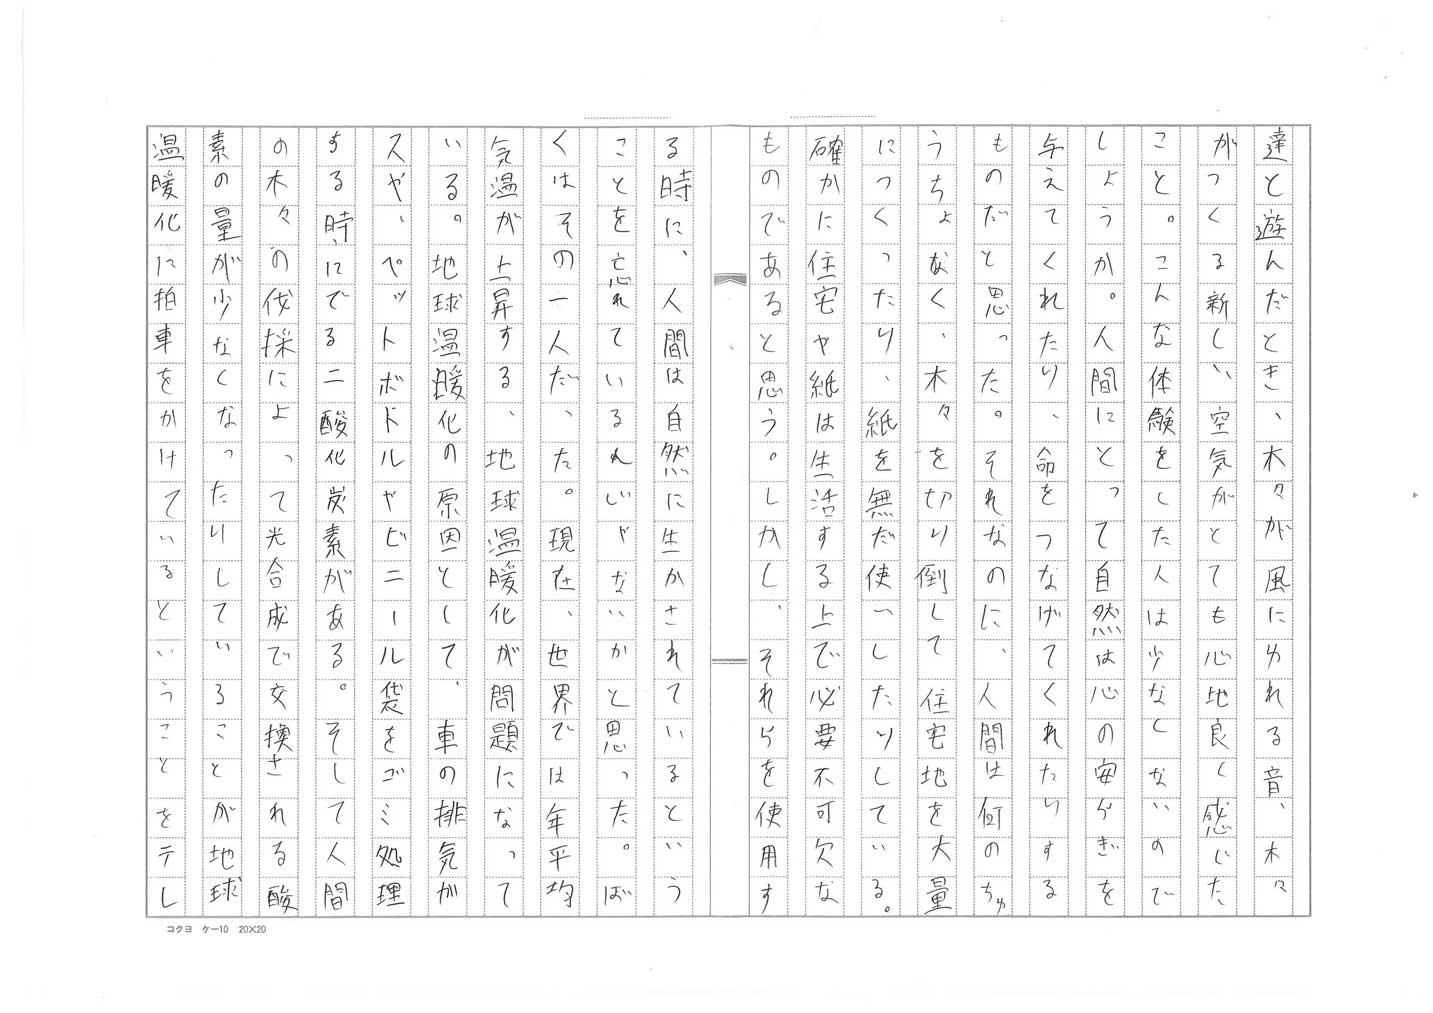 達と遊んだとき、木々が風にゆれる音、木々
がつくる新しい空気がとても心地良く感じた
こと。こんな体験をした人は少なくないので
しょうか。人間にとって自然は心の安らぎを
与えてくれたり、命をつなげてくれたりする
ものだと思った。それなのに、人間は何のちゅ
うちょなく、木々を切り倒して住宅地を大量
につくったり、紙を無だ使いしたりしている。
確かに住宅や紙は生活する上で必要不可欠な
ものであると思う。しかし、それらを使用す
る時に、人間は自然に生かされているという
ことを忘れているんじゃないかと思った。ぼ
くはその一人だった。現在、世界では年平均
気温が上昇する、地球温暖化が問題になって
いる。地球温暖化の原因として、車の排気が
スや、ペットボトルやビニール袋をゴミ処理
する時にでる二酸化炭素がある。そして人間
の木々の伐採によって光合成で交換される酸
素の量が少なくなったりしていることが地球
温暖化に拍車をかけているということをテレ
コクヨ ケー10 20×20